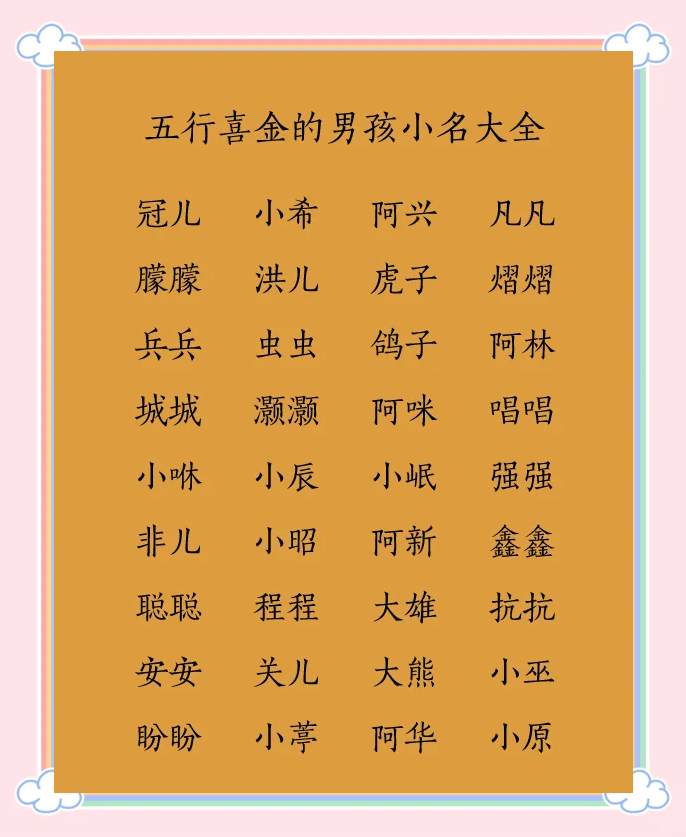 五行喜金的男孩小名大全
冠儿 小希 阿兴 凡凡
朦朦 洪儿 虎子 熠熠
兵兵 虫虫 鸽子 阿林
城城 灏灏 阿咪 唱唱
小咻 小辰 小岷 强强
非儿 小昭 阿新 鑫鑫
聪聪 程程 大雄 抗抗
安安 关儿 大熊 小巫
盼盼 小葶 阿华 小原